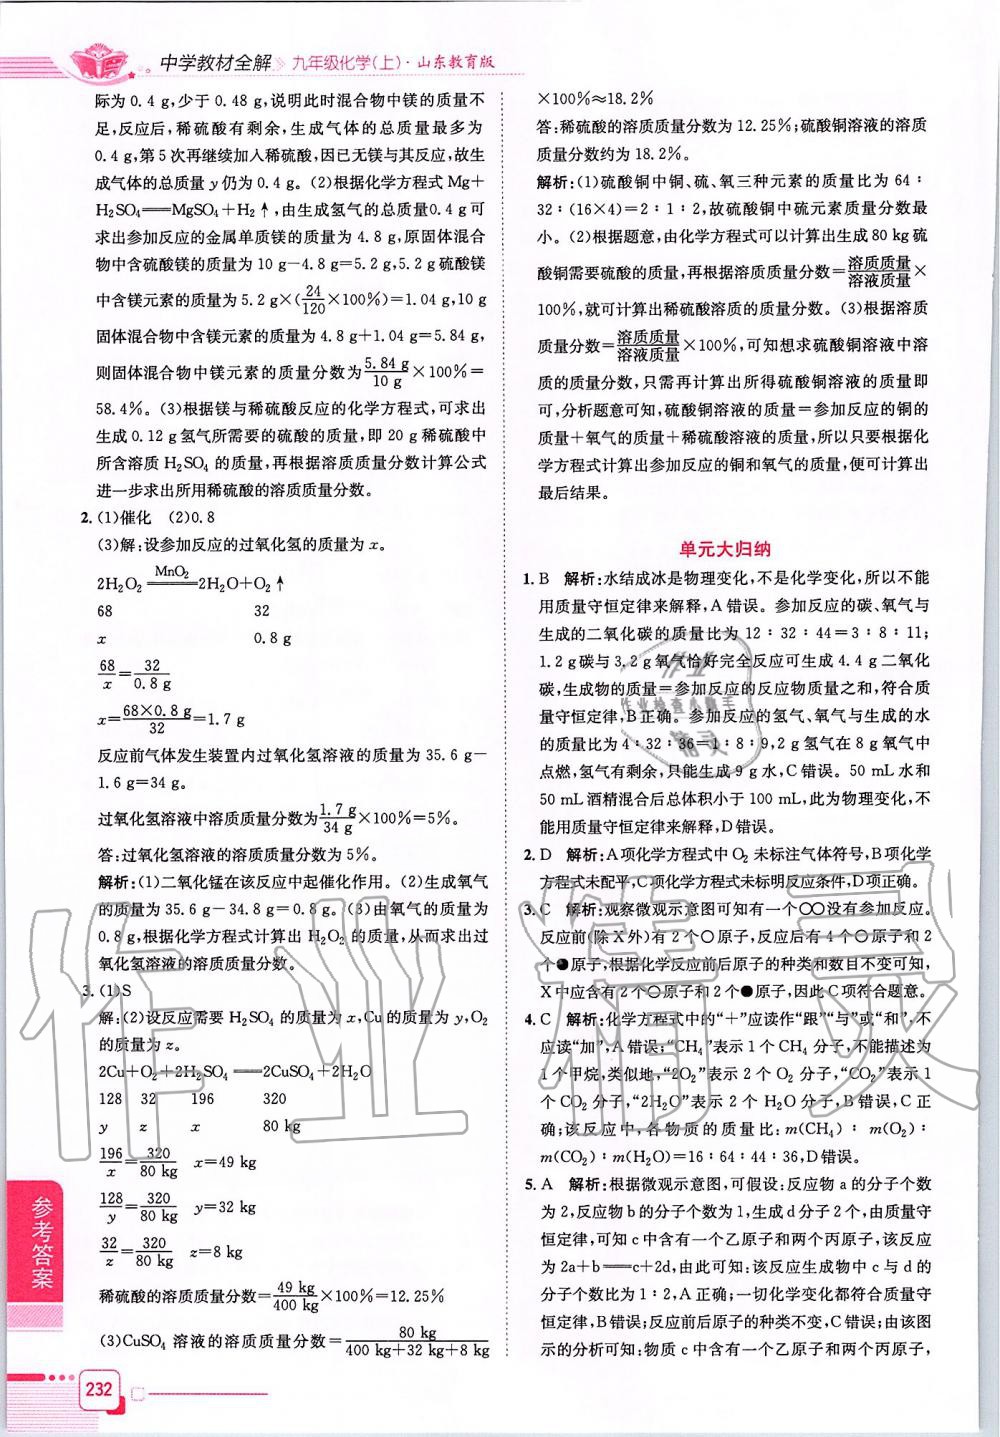 中学教材全解 九年级化学(上)·山东教育版
际为 0.4 g,少于 0.48 g,说明此时混合物中镁的质量不
足,反应后,稀硫酸有剩余,生成气体的总质量最多为
0.4 g,第5次再继续加入稀硫酸,因已无镁与其反应,故生
成气体的总质量 y 仍为 0.4 g。(2)根据化学方程式 Mg+
H₂SO₄══MgSO₄+H₂↑,由生成氢气的总质量0.4 g可
求出参加反应的金属单质镁的质量为 4.8 g,原固体混合
物中含硫酸镁的质量为 10 g-4.8 g=5.2 g,5.2 g硫酸镁
中含镁元素的质量为 5.2 g×(24/120×100%)=1.04 g,10 g
固体混合物中含镁元素的质量为 4.8 g+1.04 g=5.84 g,
则固体混合物中镁元素的质量分数为5.84 g/10 g×100%=
58.4%。(3)根据镁与稀硫酸反应的化学方程式,可求出
生成 0.12 g氢气所需要的硫酸的质量,即 20 g稀硫酸中
所含溶质 H₂SO₄ 的质量,再根据溶质质量分数计算公式
进一步求出所用稀硫酸的溶质质量分数。
2. (1)催化 (2)0.8
(3)解:设参加反应的过氧化氢的质量为 x。
2H₂O₂ ══MnO₂══ 2H₂O+O₂↑
68 32
x 0.8 g
68/x=32/0.8 g
x=68×0.8 g/32=1.7 g
反应前气体发生装置内过氧化氢溶液的质量为 35.6 g-
1.6 g=34 g。
过氧化氢溶液中溶质质量分数为1.7 g/34 g×100%=5%。
答:过氧化氢溶液的溶质质量分数为 5%。
解析:(1)二氧化锰在该反应中起催化作用。(2)生成氧气
的质量为 35.6 g-34.8 g=0.8 g。(3)由氧气的质量为
0.8 g,根据化学方程式计算出 H₂O₂ 的质量,从而求出过
氧化氢溶液的溶质质量分数。
3. (1)S
解:(2)设反应需要 H₂SO₄ 的质量为 x,Cu的质量为 y,O₂
的质量为 z。
2Cu+O₂+2H₂SO₄══2CuSO₄+2H₂O
128 32 196 320
y z x 80 kg
196/x=320/80 kg x=49 kg
128/y=320/80 kg y=32 kg
32/z=320/80 kg z=8 kg
稀硫酸的溶质质量分数=49 kg/400 kg×100%=12.25%
(3)CuSO₄ 溶液的溶质质量分数=80 kg/(400 kg+32 kg+8 kg)
×100%≈18.2%
答:稀硫酸的溶质质量分数为 12.25%;硫酸铜溶液的溶质
质量分数约为 18.2%。
解析:(1)硫酸铜中铜、硫、氧三种元素的质量比为 64∶
32∶(16×4)=2∶1∶2,故硫酸铜中硫元素质量分数最
小。(2)根据题意,由化学方程式可以计算出生成 80 kg硫
酸铜需要硫酸的质量,再根据溶质质量分数=溶质质量/溶液质量×
100%,就可计算出稀硫酸溶质的质量分数。(3)根据溶质
质量分数=溶质质量/溶液质量×100%,可知想求硫酸铜溶液中溶
质的质量分数,只需再计算出所得硫酸铜溶液的质量即
可,分析题意可知,硫酸铜溶液的质量=参加反应的铜的
质量+氧气的质量+稀硫酸溶液的质量,所以只要根据化
学方程式计算出参加反应的铜和氧气的质量,便可计算出
最后结果。
单元大归纳
1. B 解析:水结成冰是物理变化,不是化学变化,所以不能
用质量守恒定律来解释,A错误。参加反应的碳、氧气与
生成的二氧化碳的质量比为 12∶32∶44=3∶8∶11;
1.2 g碳与 3.2 g氧气恰好完全反应可生成 4.4 g二氧化
碳,生成物的质量=参加反应的反应物质量之和,符合质
量守恒定律,B正确。参加反应的氢气、氧气与生成的水
的质量比为 4∶32∶36=1∶8∶9,2 g氢气在 8 g氧气中
点燃,氢气有剩余,只能生成 9 g水,C错误。50 mL水和
50 mL酒精混合后总体积小于 100 mL,此为物理变化,不
能用质量守恒定律来解释,D错误。
2. D 解析:A项化学方程式中 O₂ 未标注气体符号,B项化学
方程式未配平,C项化学方程式未标明反应条件,D项正确。
3. C 解析:观察微观示意图可知有一个○○没有参加反应。
反应前(除X外)有2个○原子,反应后有4个○原子和2
个●原子,根据化学反应前后原子的种类和数目不变可知,
X中应含有2个○原子和2个●原子,因此C项符合题意。
4. C 解析:化学方程式中的“+”应读作“跟”“与”或“和”,不
应读“加”,A错误;“CH₄”表示1个 CH₄ 分子,不能描述为
1个甲烷,类似地,“2O₂”表示2个 O₂ 分子,“CO₂”表示1
个CO₂ 分子,“2H₂O”表示2个 H₂O分子,B错误,C正
确;该反应中,各物质的质量比:m(CH₄)∶m(O₂)∶
m(CO₂)∶m(H₂O)=16∶64∶44∶36,D错误。
5. A 解析:根据微观示意图,可假设:反应物a的分子个数
为2,反应物b的分子个数为1,生成d分子2个,由质量守
恒定律,可知c中含有一个乙原子和两个丙原子,该反应
为2a+b══c+2d,由此可知:该反应生成物中c与d的
分子个数比为1∶2,A正确;一切化学变化都遵循质量守
恒定律,B错误;反应前后原子的种类不变,C错误;由该图
示的分析可知:物质c中含有一个乙原子和两个丙原子,
参考答案
232
作业
作业检查小助手
精灵
作业精灵